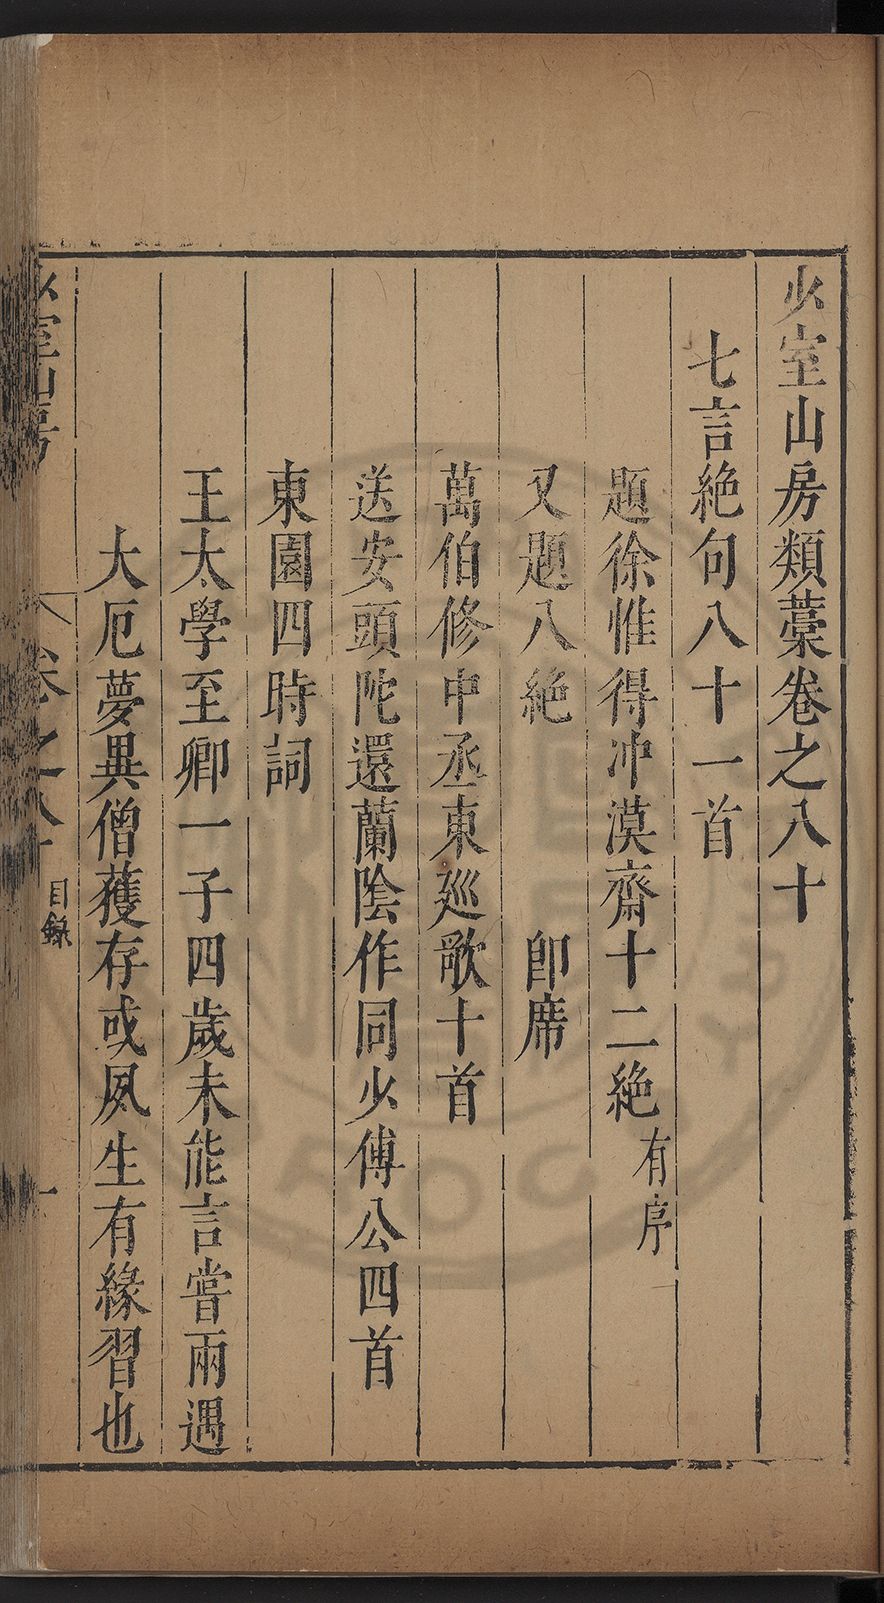 少室山房類藁卷之八十
七言絶句八十一首
題徐惟得冲漠齋十二絶有序
又題八絶 即席
萬伯修中丞東廵歌十首
送安頭陀還蘭隂作同少傅公四首
東園四時詞
王太學至卿一子四歲未能言嘗兩遇
大厄夢異僧獲存或夙生有緣習也
少室山房 卷之八十 目錄 一